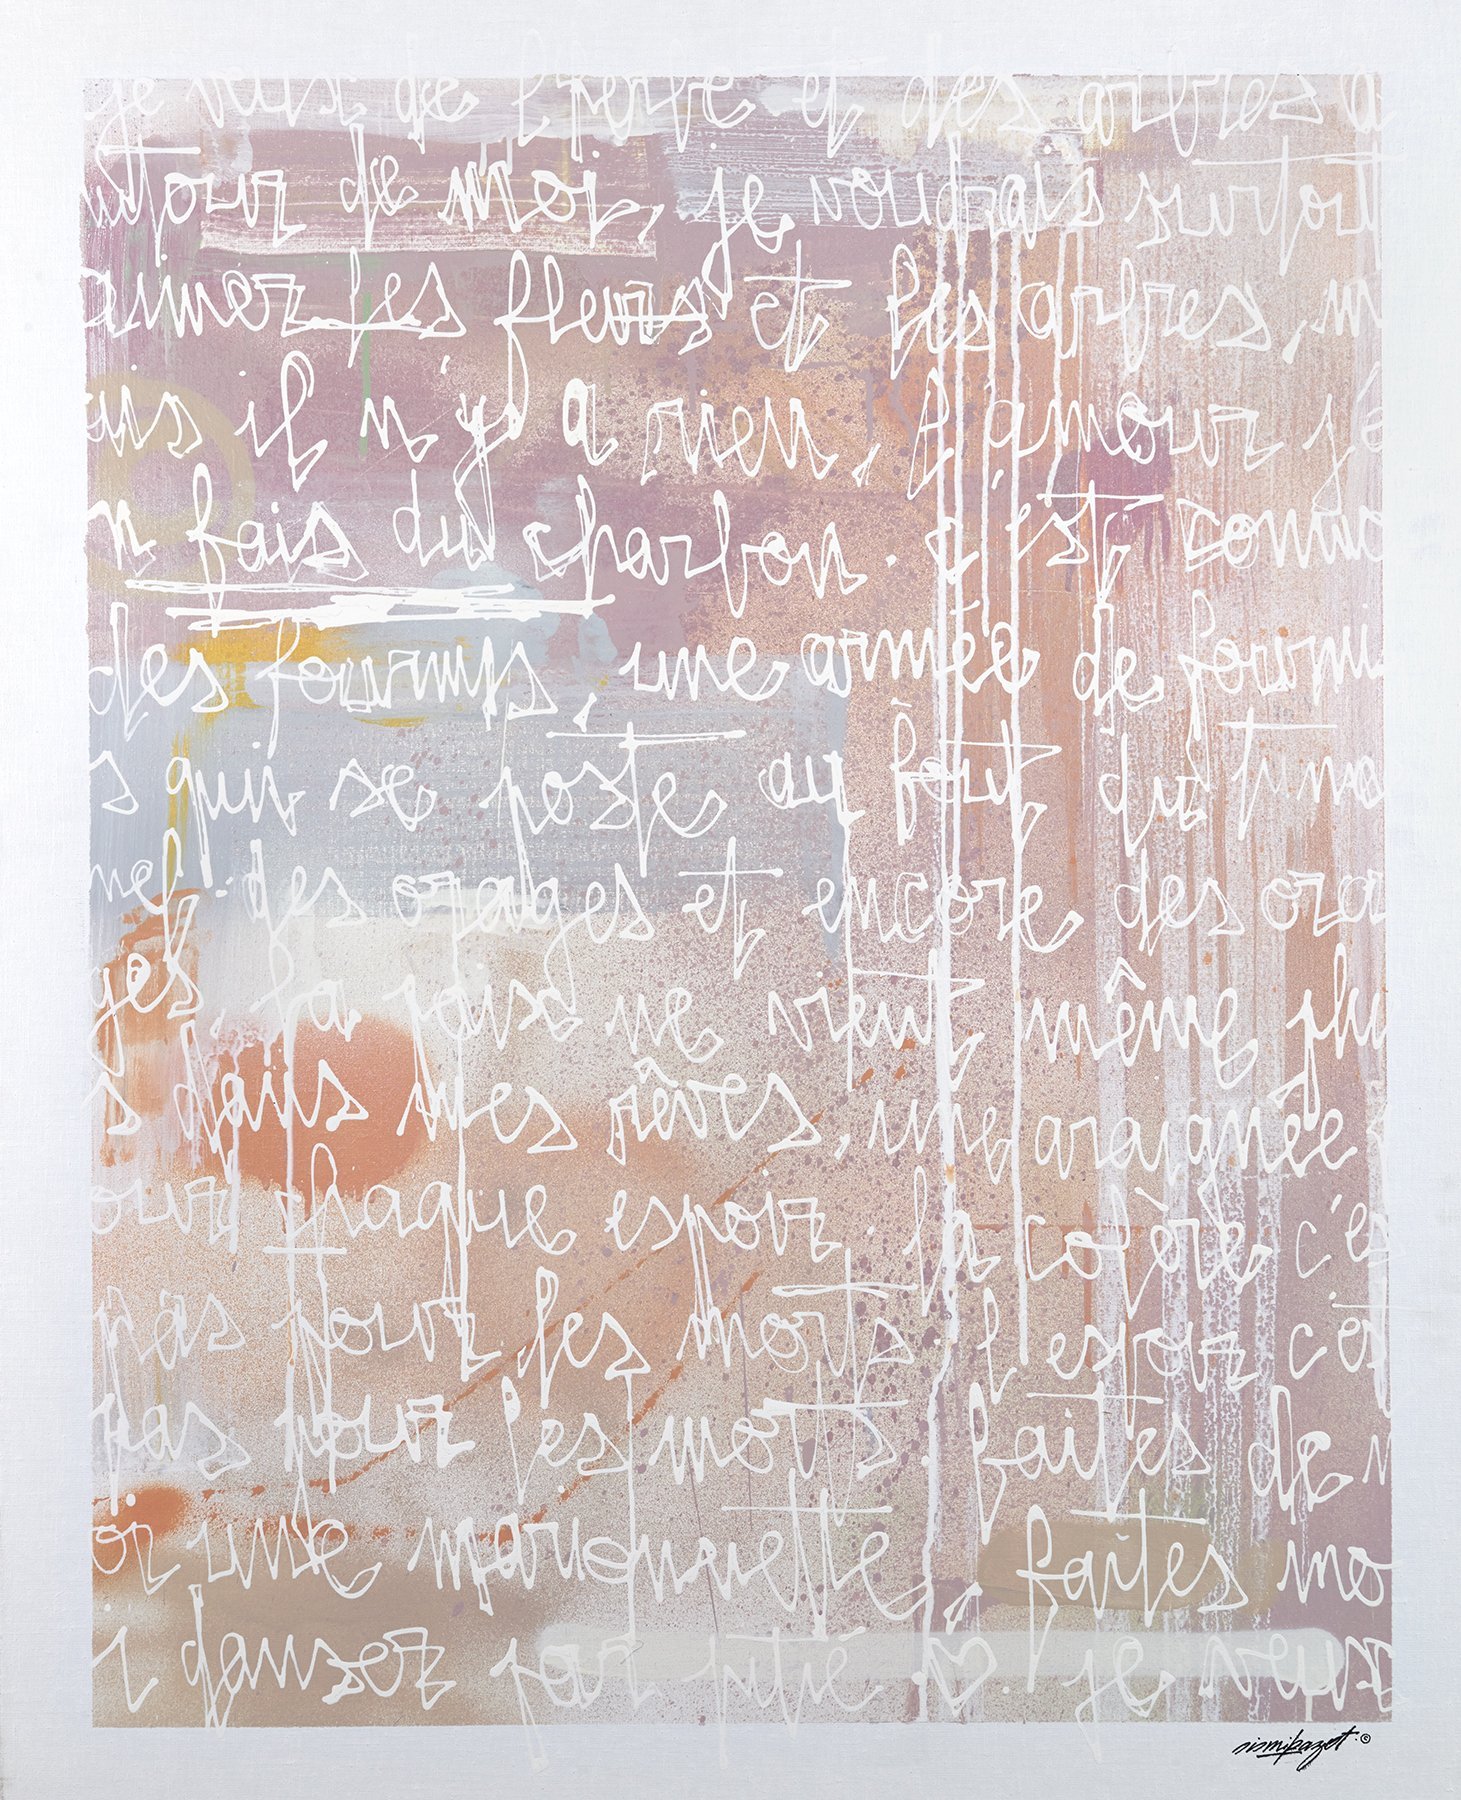 je vis. de l'herbe et des arbres a
utour de moi, je voudrais surtout
aimer les fleurs et les arbres, m
ais il n'y a rien. l'amour j'e
n fais du charbon. c'est comme
des fourmis, une armée de fourmi
s qui se poste au bout du tun
nel. des orages et encore des ora
ges. la paix ne vient même plu
s dans mes rêves, une araignée
our chaque espoir. la colère c'es
pas pour les morts. l'espoir c'est
pas pour les morts. faites de m
oi une marionnette, faites mo
i danser par pitié. je veux
sismikazot ©